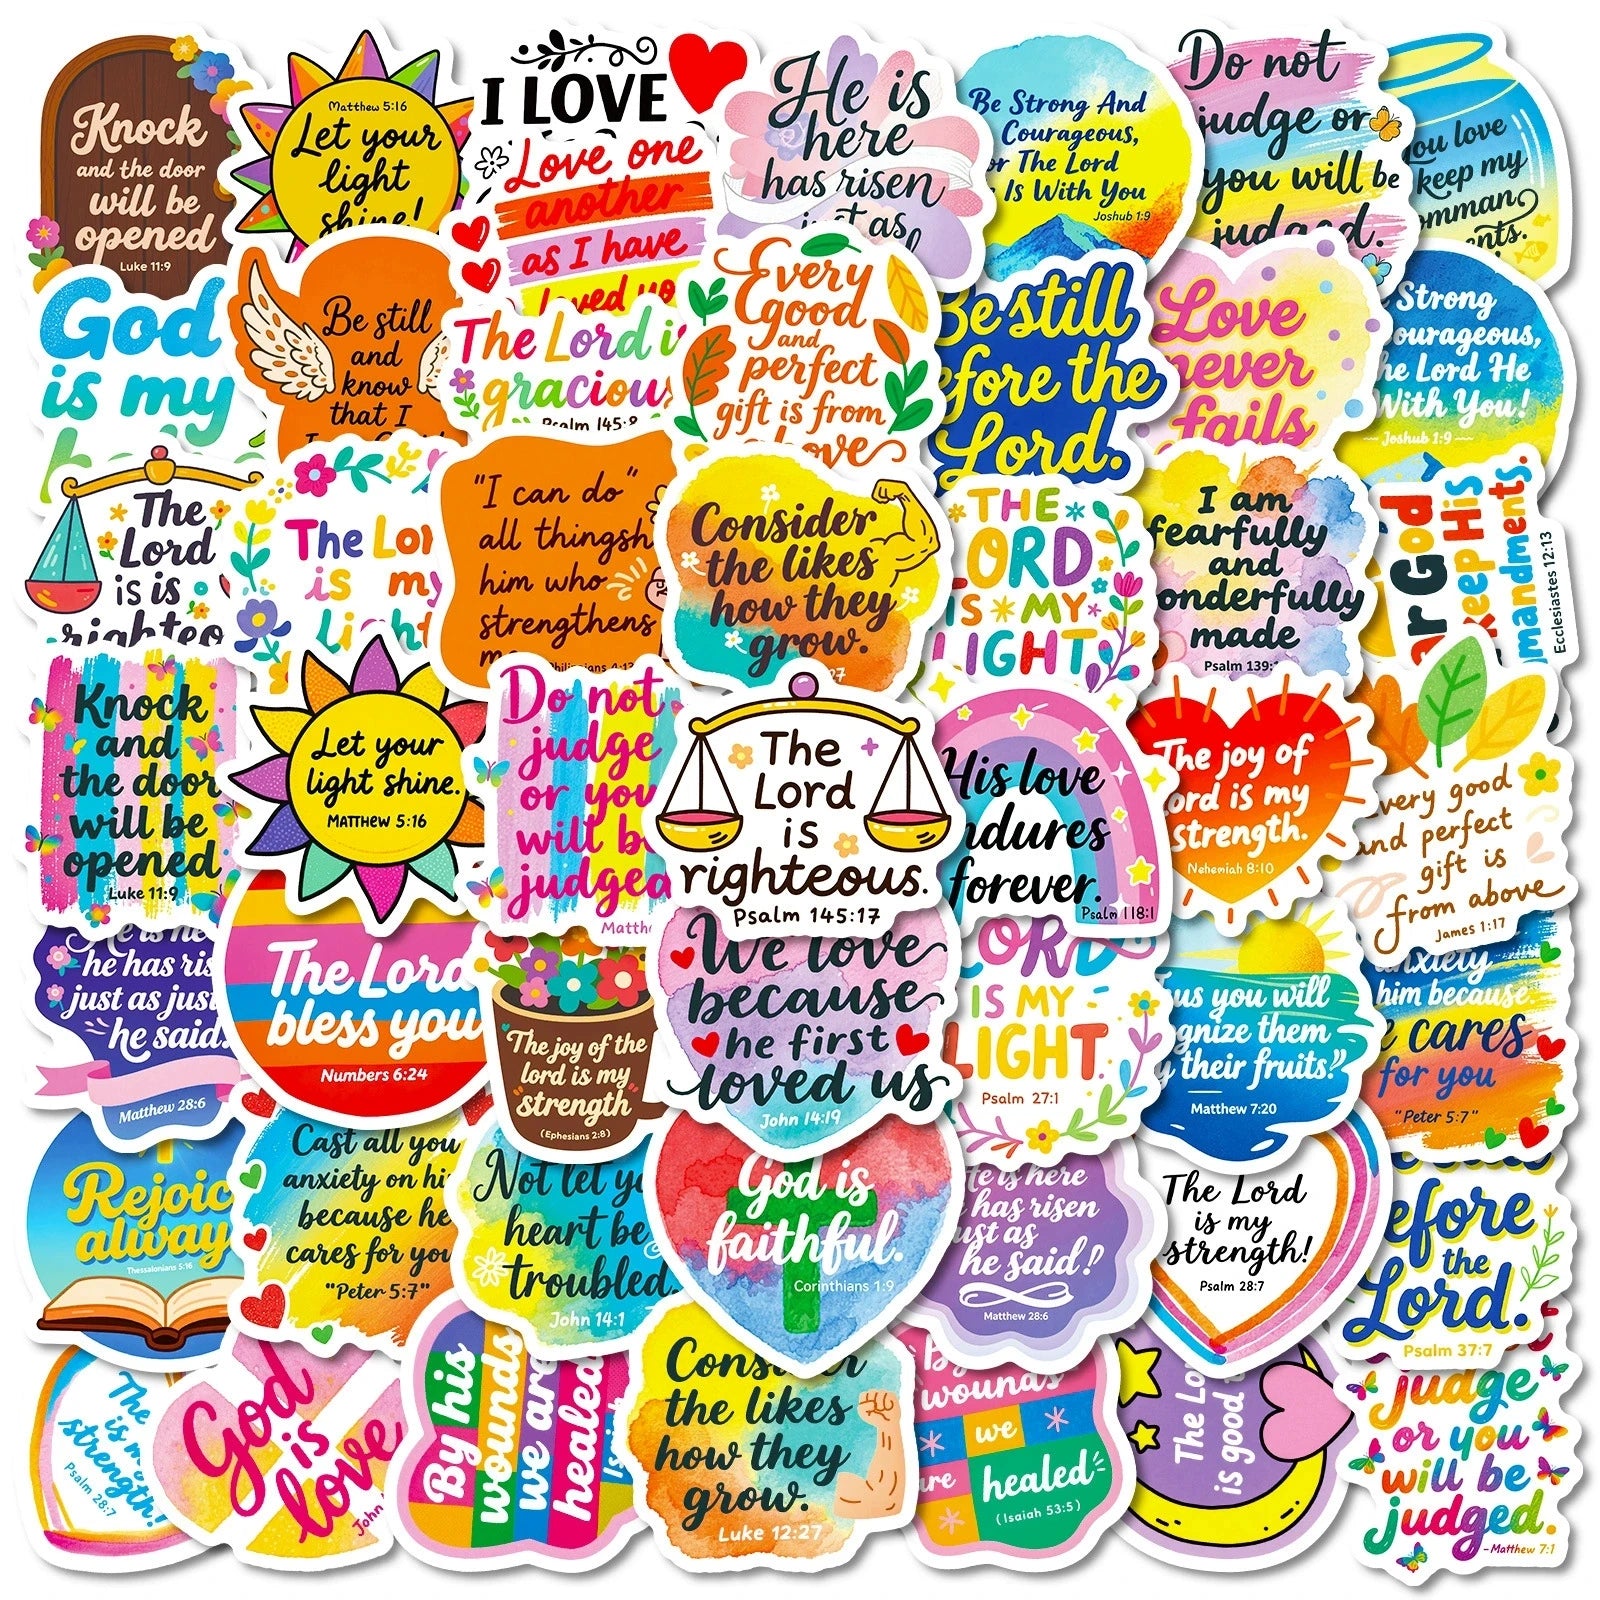 Knock
and the door
will be
opened
Luke 11:9
Matthew 5:16
Let your
light
shine!
I LOVE
Love one
another
as I have
loved you
He is
here
has risen
just as
Be Strong And
Courageous,
or The Lord
Is With You
Joshub 1:9
Do not
judge or
you will be
judged.
you love
keep my
omman
ents.
God
is my
Be still
and
know
that I
The Lord is
gracious
Psalm 145:8
Every
good
and
perfect
gift is from
above
Be still
efore the
Lord.
Love
never
fails
Strong
ourageous,
he Lord He
With You!
Joshub 1:9
The
Lord
is is
righteo
The Lor
is my
Light
"I can do"
all thingsh
him who
strengthens
me
Philippians 4:13
Consider
the likes
how they
grow.
27
THE
LORD
IS MY
LIGHT
I am
fearfully
and
onderfully
made
Psalm 139:
ar God
keep His
mmandments.
Ecclesiastes 12:13
Knock
and
the door
will be
opened
Luke 11:9
Let your
light shine.
MATTHEW 5:16
Do not
judge
or you
will be
judged
Matth
The
Lord
is
righteous.
Psalm 145:17
His love
ndures
forever.
Psalm 118:1
The joy of
ord is my
strength.
Nehemiah 8:10
very good
and perfect
gift is
from above
James 1:17
He is he
he has ris
just as just
he said.
Matthew 28:6
The Lord
bless you
Numbers 6:24
The joy of the
lord is my
strength
(Ephesians 2:8)
We love
because
he first
loved us
John 14:19
LORD
IS MY
LIGHT.
Psalm 27:1
us you will
gnize them
y their fruits."
Matthew 7:20
anxiety
him because
e cares
for you
"Peter 5:7"
Rejoic
alway
Thessalonians 5:16
Cast all you
anxiety on hi
because he
cares for you
"Peter 5:7"
Not let yo
heart be
troubled.
John 14:1
God is
faithful.
Corinthians 1:9
He is here
has risen
ust as
he said!
Matthew 28:6
The Lord
is my
strength!
Psalm 28:7
efore
the
Lord.
Psalm 37:7
The
is my
strength!
Psalm 28:7
God
is
love
John
By his
wounds
we are
healed
Isai
Consider
the likes
how they
grow.
Luke 12:27
By
wounds
we
are
healed
(Isaiah 53:5)
The Lo
is good
judge
or you
will be
judged.
-Matthew 7:1